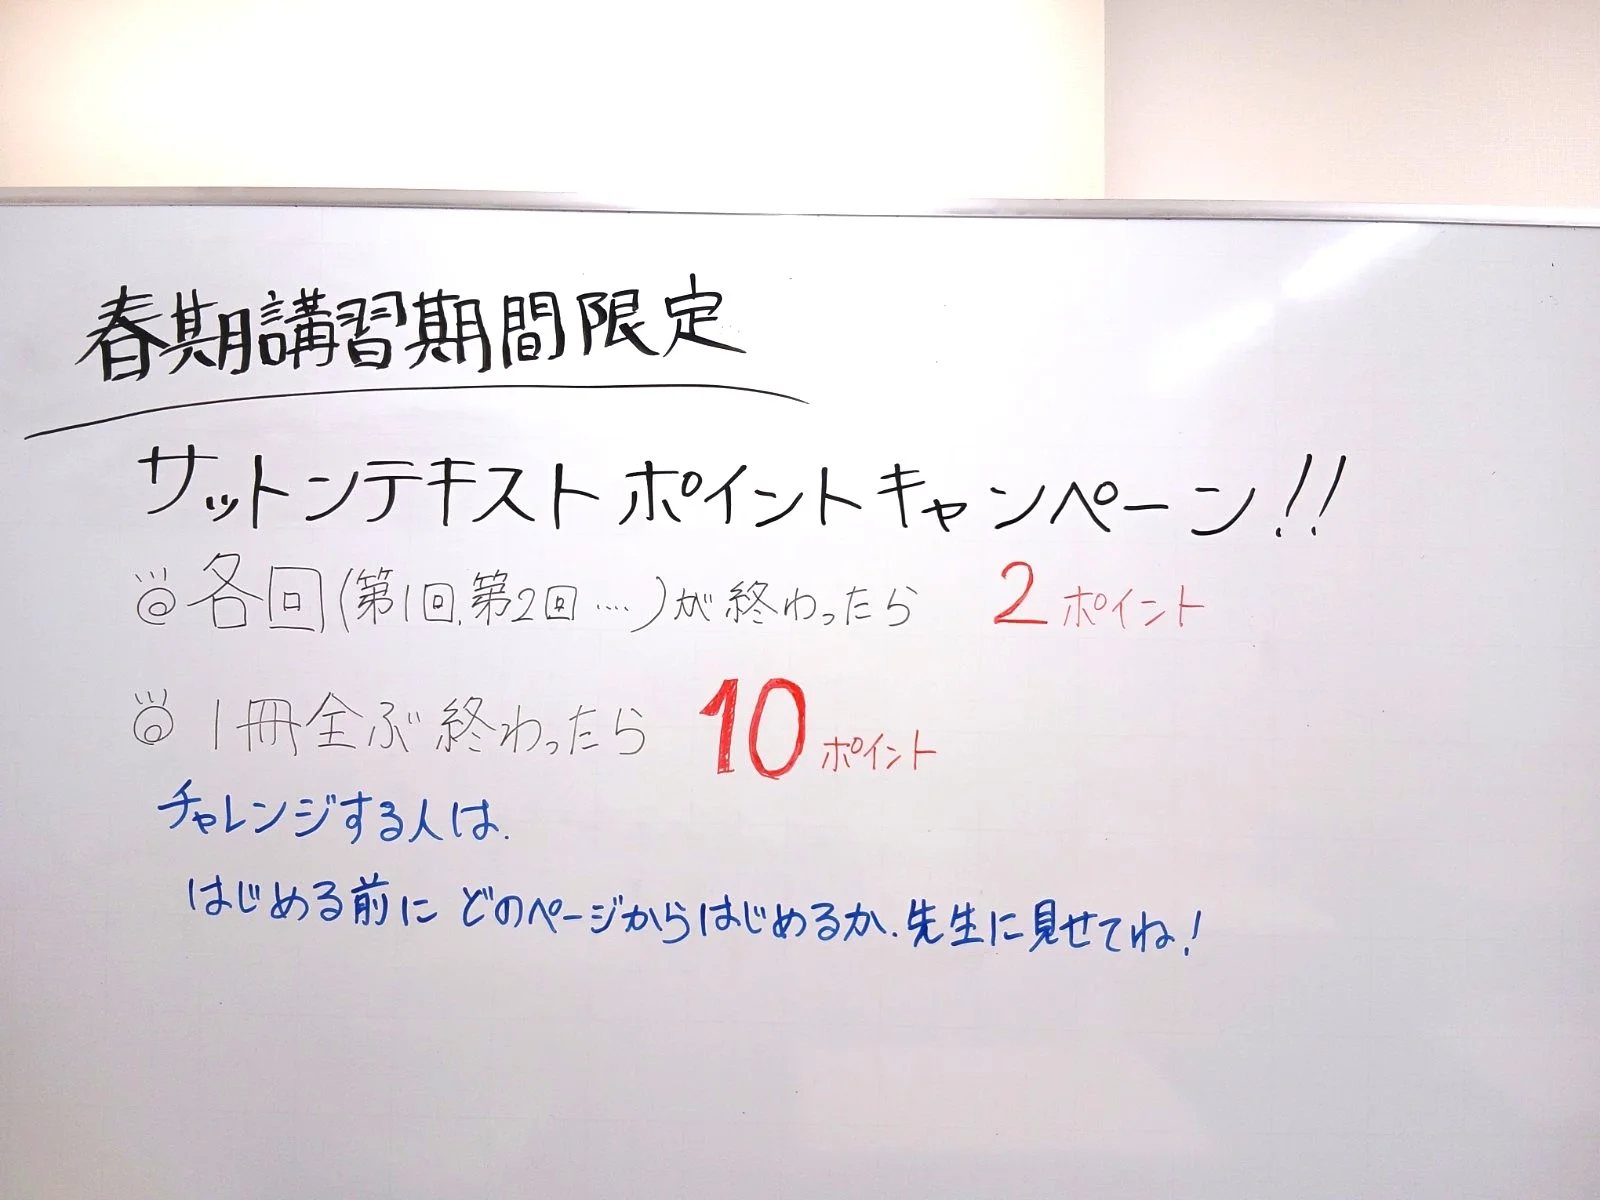 春期講習期間限定
サットンテキスト ポイントキャンペーン!!
◎各回(第1回,第2回....)が終わったら 2ポイント
◎1冊全ぶ終わったら 10ポイント
チャレンジする人は、
はじめる前に どのページからはじめるか、先生に見せてね!